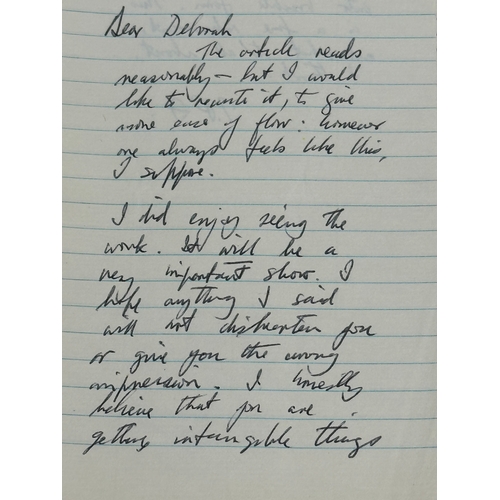 Dear Deborah
The article reads
reasonably – but I would
like to rewrite it, to give
more ease of flow : however
one always feels like this,
I suppose.
I did enjoy seeing the
work. It will be a
very important show. I
hope anything I said
will not dishearten you
or give you the wrong
impression. I honestly
believe that you are
getting intangible things